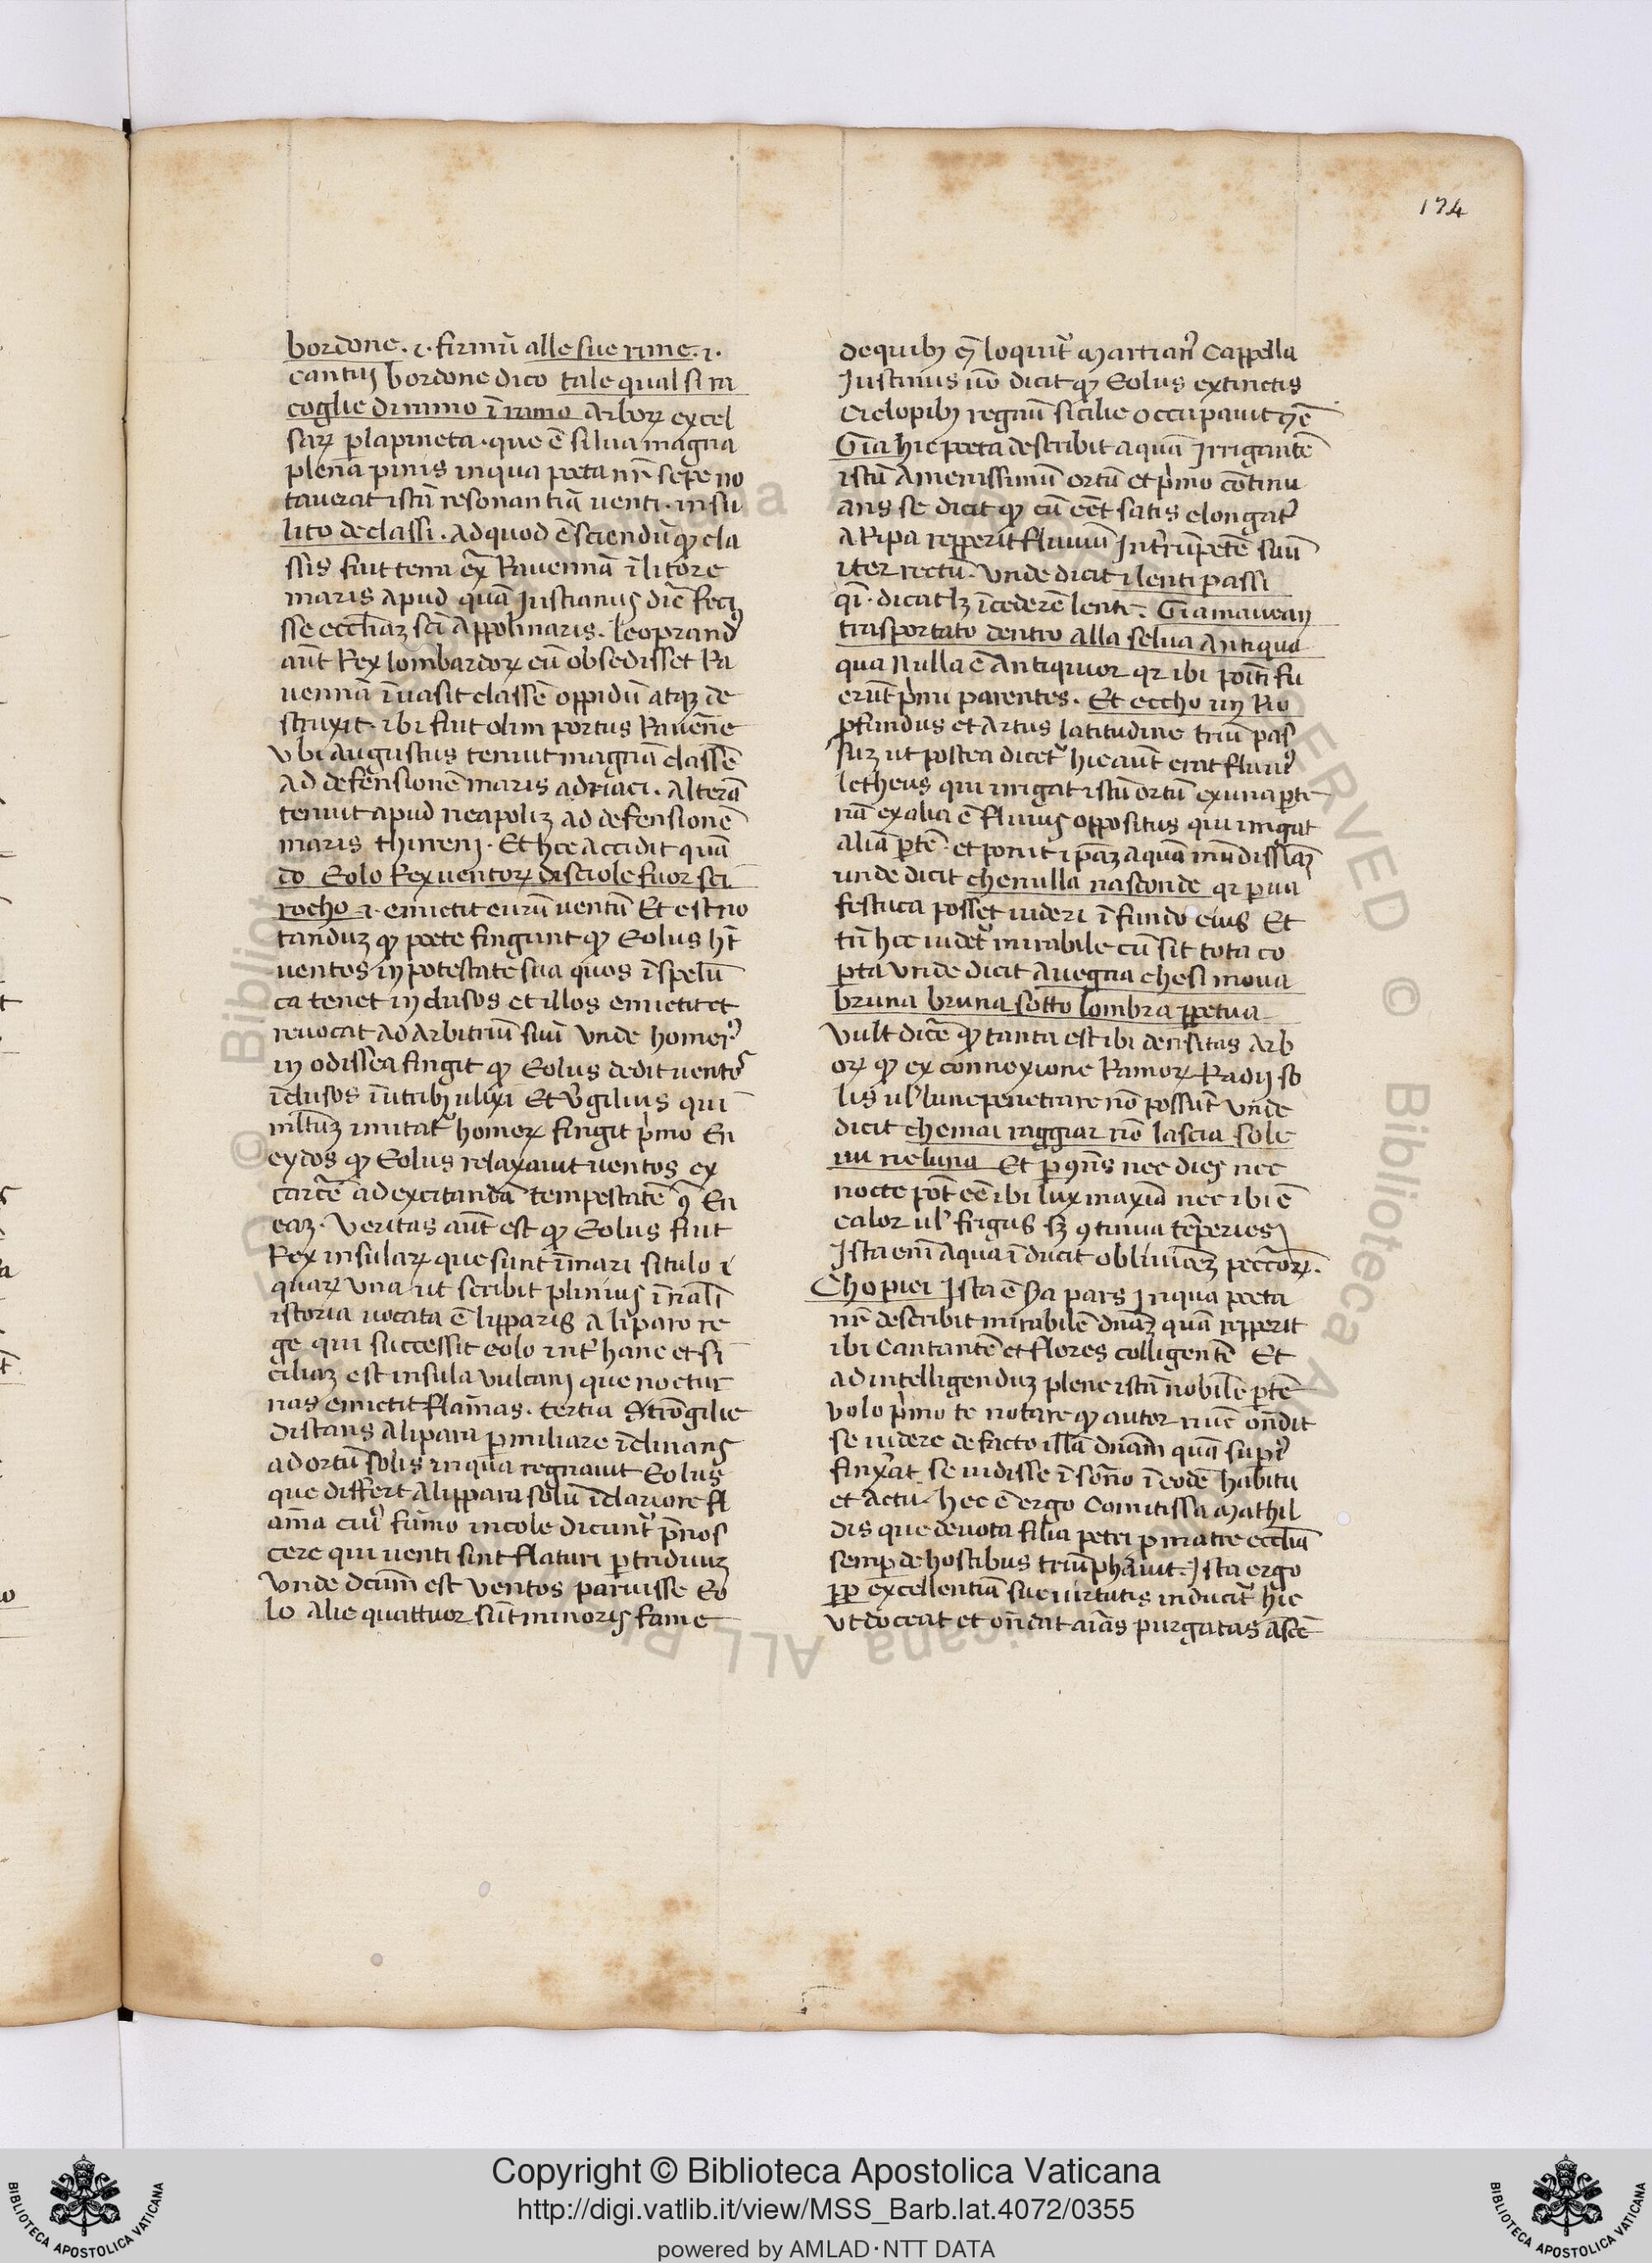 174
bordone .i. firmũ alle sue rime .i.
cantus bordone dico tale qual si ra
coglie di ramo ĩ ramo Arborꝝ excel
sarꝝ p la pineta . que ẽ silua magna
plena pinis in qua poeta nr̃ sepe no
tauerat istã resonantiã uenti . in su
lito de classi . Ad quod ẽ sciendũ ꝙ cla
ssis fuit terra ex̃ Rauennã ĩ litore
maris apud quã Iustianus dic̃ feci
sse eccl̃iaz sc̃i Appolinaris . Leoprandꝰ
aũt Rex lombardorꝝ cũ obsedisset Ra
uennã ĩuasit classẽ oppidũ atqꝫ de
struxit . ibi fuit olim portus Rauẽne
Vbi Augustus tenuit magnã classẽ
Ad defensionẽ maris adriaci . Alterã
tenuit apud neapoliz ad defensionẽ
maris thireni . Et hec accidit quã
do Eolo Rex uentorꝝ disciole fuor sci
rocho .i. emictit eurũ uentũ Et est no
tanduz ꝙ poete fingunt ꝙ Eolus h̃t
uentos in potestate sua quos ĩ spelũ
ca tenet inclusos et illos emictit et
reuocat ad Arbitriũ suũ Vnde homerꝰ
in odissea fingit ꝙ Eolus dedit uentos
ĩclusos ĩ utribꝫ ulixi Et Vĩgilius qui
ml̃tuz imitatᷣ homerꝝ fingit p̾mo En
eydos ꝙ Eolus relaxauit uentos ex
carcẽ ad excitandã tempestatẽ ꝯ̃ En
eaz . Veritas aũt est ꝙ Eolus fuit
Rex insularꝝ que sunt ĩ mari situlo ĩ
quarꝝ Vna ut scribit plinius ĩ nal̃i
istoria uocata ẽ lipparis A liparo re
ge qui successit eolo int̾ hanc et si
ciliaz est insula Vulcani que noctur
nas emictit flam̃as . tertia Strõgilie
distans A lipara p miliare ĩclinans
ad ortũ solis in qua regnauit Eolus
que differt A lippara solũ ĩ clariore fl
am̃a cuiꝰ fumo incole dicuntᷣ p̃nos
cere qui uenti sint flaturi p triduuz
Vnde dc̃um est Ventos paruisse Eo
lo Alie quattuor sũt minoris fame
de quibꝫ eñ loquitᷣ Martianꝰ Cappella
Iustinus uõ dicit ꝙ Eolus extinctis
Ciclopibꝫ regnũ sicilie occupauit
Gia hic poeta describit aquã Irrigantẽ
istũ Amenissimũ ortũ et p̾mo cõtinu
ans se dicit ꝙ cũ eẽt satis elongatꝰ
A Ripa repperit fluuiũ Int̾rũpetẽ suũ
iter rectũ . Vnde dicit i lenti passi
q̃i . dicat lꝫ ĩcederẽ lente . Gia mauean
trasportato dentro alla selua Antiqua
qua Nulla ẽ Antiquior qꝛ ibi poiti fu
erũt p̾mi parentes . Et eccho un Rio
pfundus et Artus latitudine triũ pas
suz ut postea dicetᷣ hic aũt erat fluuiꝰ
letheus qui irrigat istũ ortũ ex una pte
nã ex alia ẽ fluuius oppositus qui irrigat
aliã ptẽ . et ponit ip̃az aquã mũdissĩaz
unde dicit che nulla nasconde qꝛ pua
festuca posset uideri ĩ fundo eius Et
tñ hec uidetᷣ mirabile cũ sit tota co
pta Vnde dicit Auegna che si moua
bruna bruna sotto lombra ppetua
Vult dicẽ ꝙ tanta est ibi densitas Arb
orꝝ ꝙ ex connexione Ramorꝝ Radii so
lis ul̾ lune penetrare nõ possũt Vnde
dicit che mai raggiar nõ lascia sole
iui ne luna Et p ꝯñs nec dies nec
nocte põt eẽ ibi lux maxĩa nec ibi ẽ
calor ul̾ frigus sꝫ ꝯtinua tẽperies
Ista eñi Aqua ĩducit obliuiõez pecc̃orꝝ .
Cho piei Ista ẽ 2a pars In qua poeta
nr̃ describit mirabilẽ dñaz quã repperit
ibi Cantantẽ et flores colligentẽ Et
ad intelligenduz plene istã nobilẽ ptẽ
Volo p̾mo te notare ꝙ autor nũc oñdit
se uidere de facto illã dñam quã supꝰ
finx̾at se uidisse ĩ sõno ĩ eodẽ habitu
et Actu . hec ẽ ergo Comitissa Mathil
dis que deuota filia petri p matre eccl̃ia
semp de hostibus triũphauit . Ista ergo
pp excellentiã sue uirtutis inducitᷣ hic
Vt doceat et oñdat aĩas purgatas ascẽ
Copyright © Biblioteca Apostolica Vaticana
http://digi.vatlib.it/view/MSS_Barb.lat.4072/0355
powered by AMLAD·NTT DATA